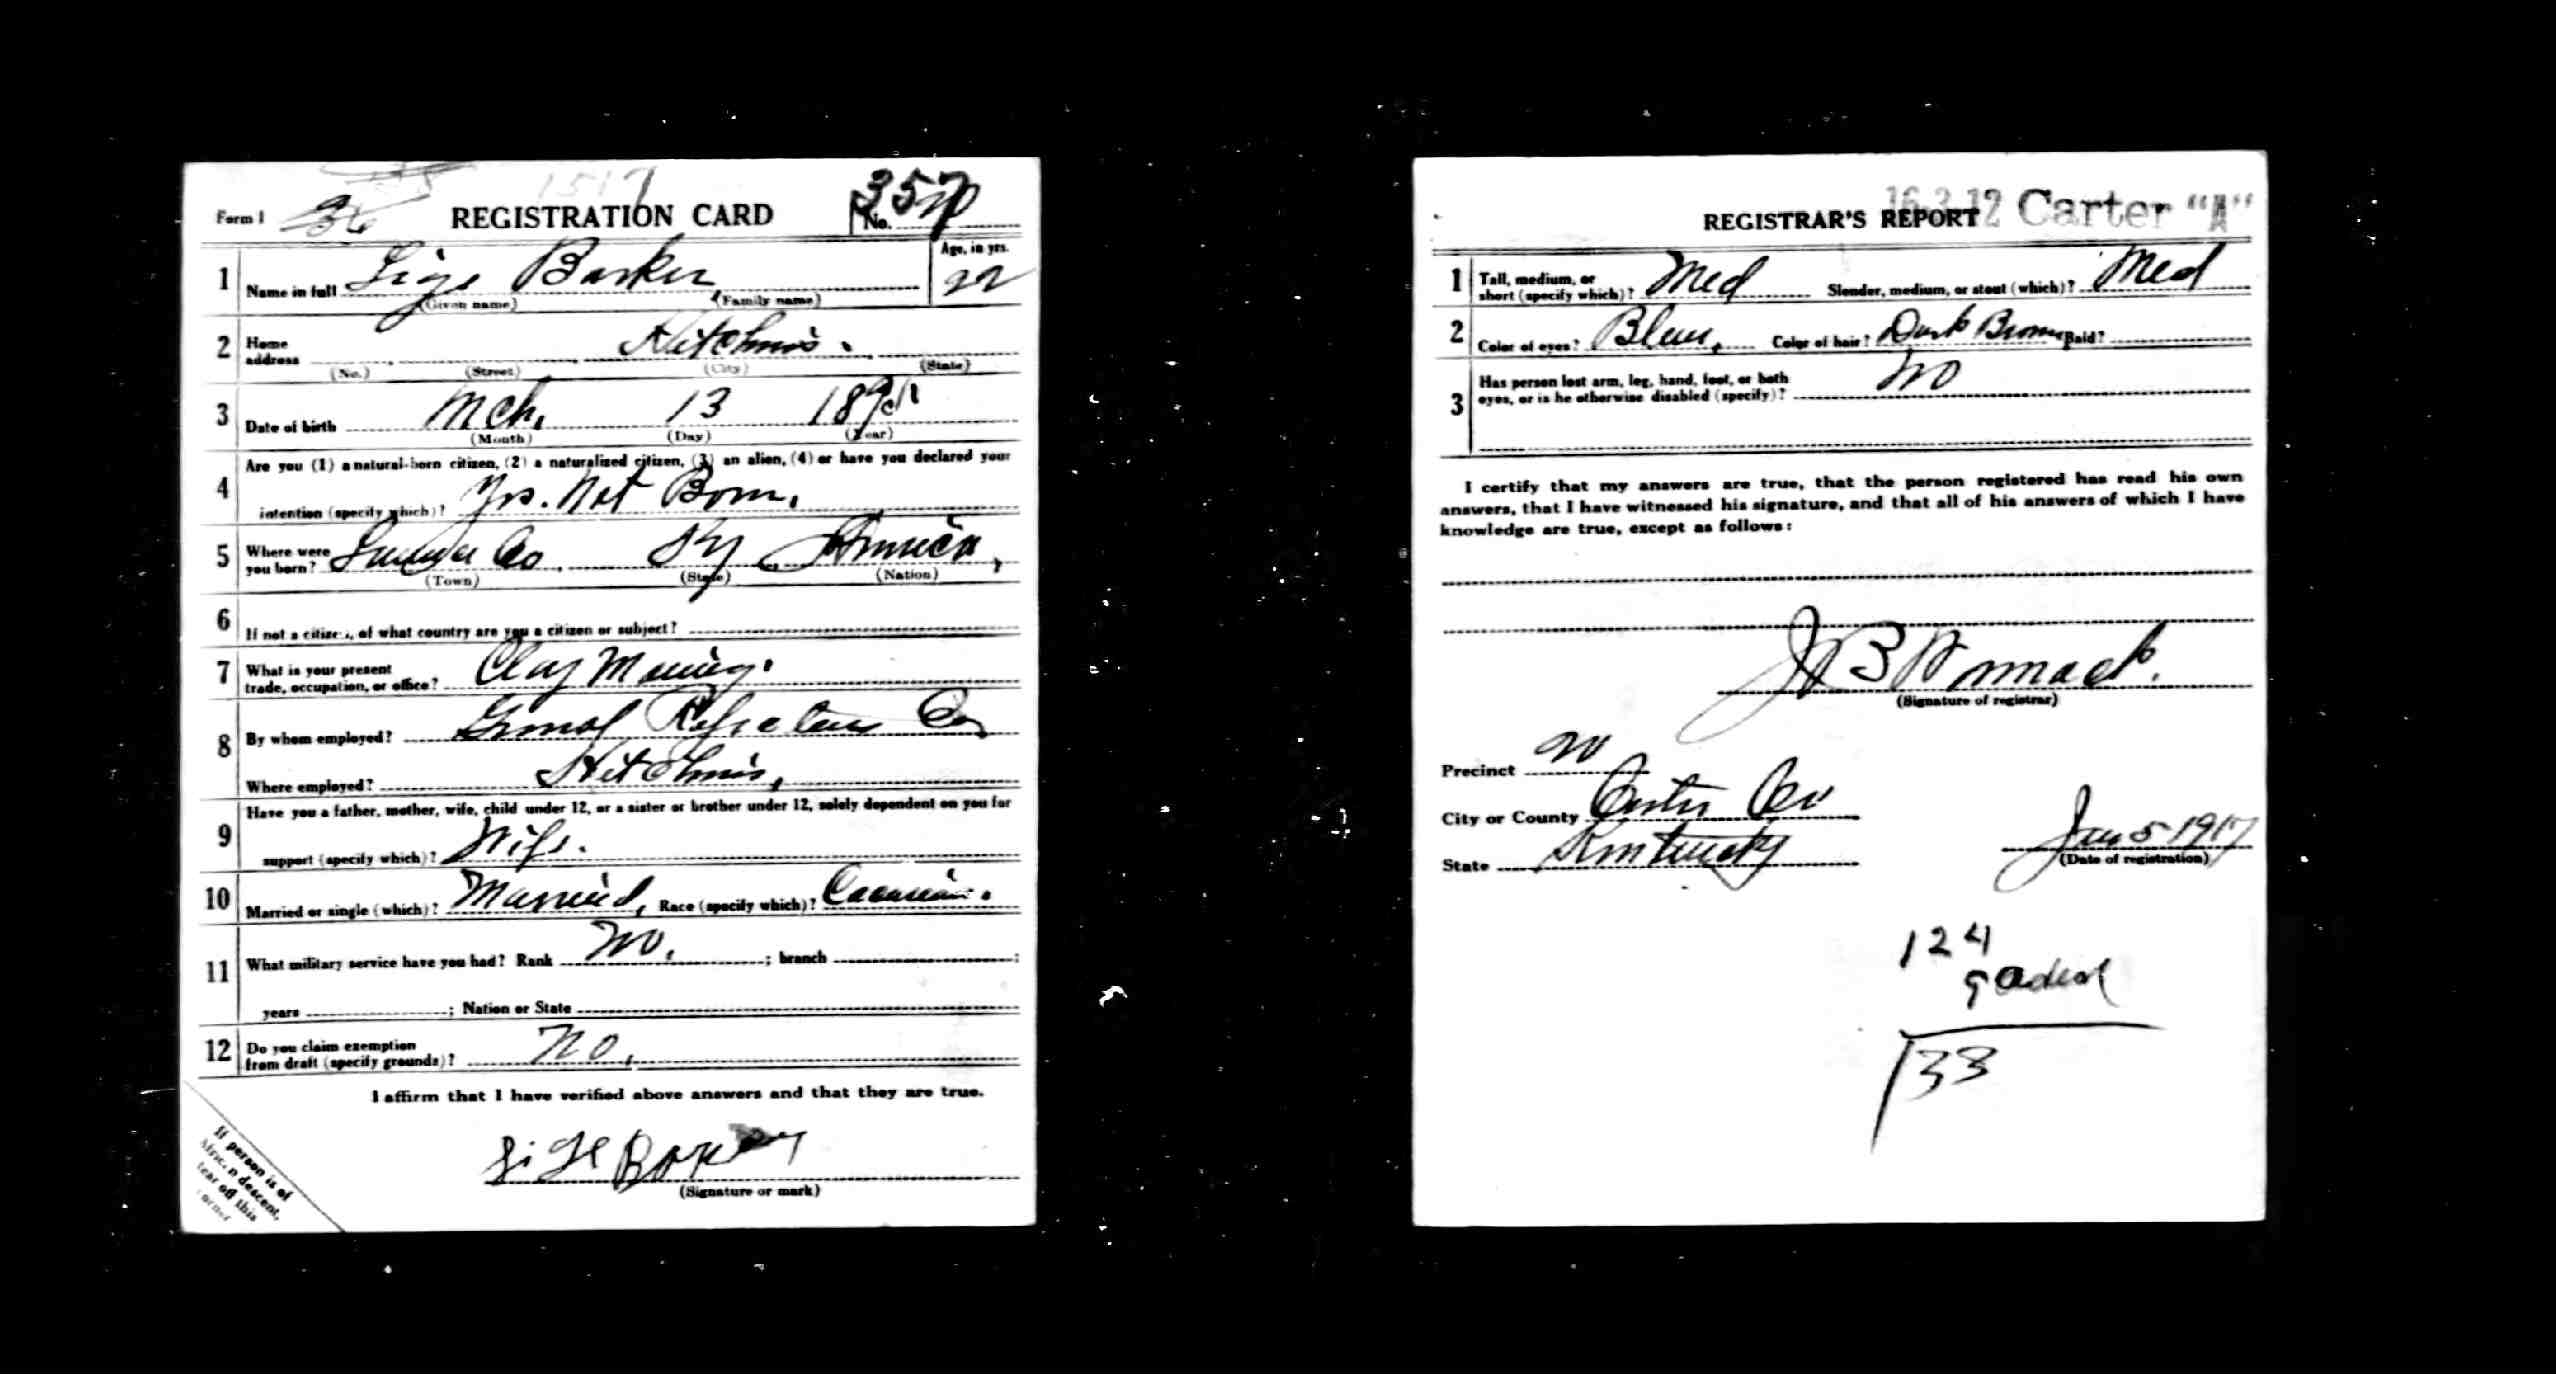 Form 1 36 REGISTRATION CARD No. 357
1 Name in full Lige Barker Age, in yrs. 22
(Given name) (Family name)
2 Home address Hitchins.
(No.) (Street) (City) (State)
3 Date of birth Mch. 13 189
(Month) (Day) (Year)
4 Are you (1) a natural-born citizen, (2) a naturalized citizen, (3) an alien, (4) or have you declared your
intention (specify which)? Yes. Nat Born.
5 Where were you born? Co Ky America,
(Town) (State) (Nation)
6 If not a citizen, of what country are you a citizen or subject?
7 What is your present
trade, occupation, or office? Clay Mining.
8 By whom employed? Refractories Co
Where employed? Hitchins,
9 Have you a father, mother, wife, child under 12, or a sister or brother under 12, solely dependent on you for
support (specify which)? Wife.
10 Married or single (which)? Married, Race (specify which)? Caucasian.
11 What military service have you had? Rank No. ; branch ;
years ; Nation or State
12 Do you claim exemption
from draft (specify grounds)? No.
I affirm that I have verified above answers and that they are true.
Barker
(Signature or mark)
If person is of
African descent,
tear off this
corner
16-3-12 Carter "A"
REGISTRAR'S REPORT
1 Tall, medium, or
short (specify which)? Med Slender, medium, or stout (which)? Med
2 Color of eyes? Blue, Color of hair? Dark Brown Bald?
3 Has person lost arm, leg, hand, foot, or both
eyes, or is he otherwise disabled (specify)? No
I certify that my answers are true, that the person registered has read his own
answers, that I have witnessed his signature, and that all of his answers of which I have
knowledge are true, except as follows:
J B Womack.
(Signature of registrar)
Precinct
City or County Carter Co
State Kentucky
Jun 5 1917
(Date of registration)
124
9
133